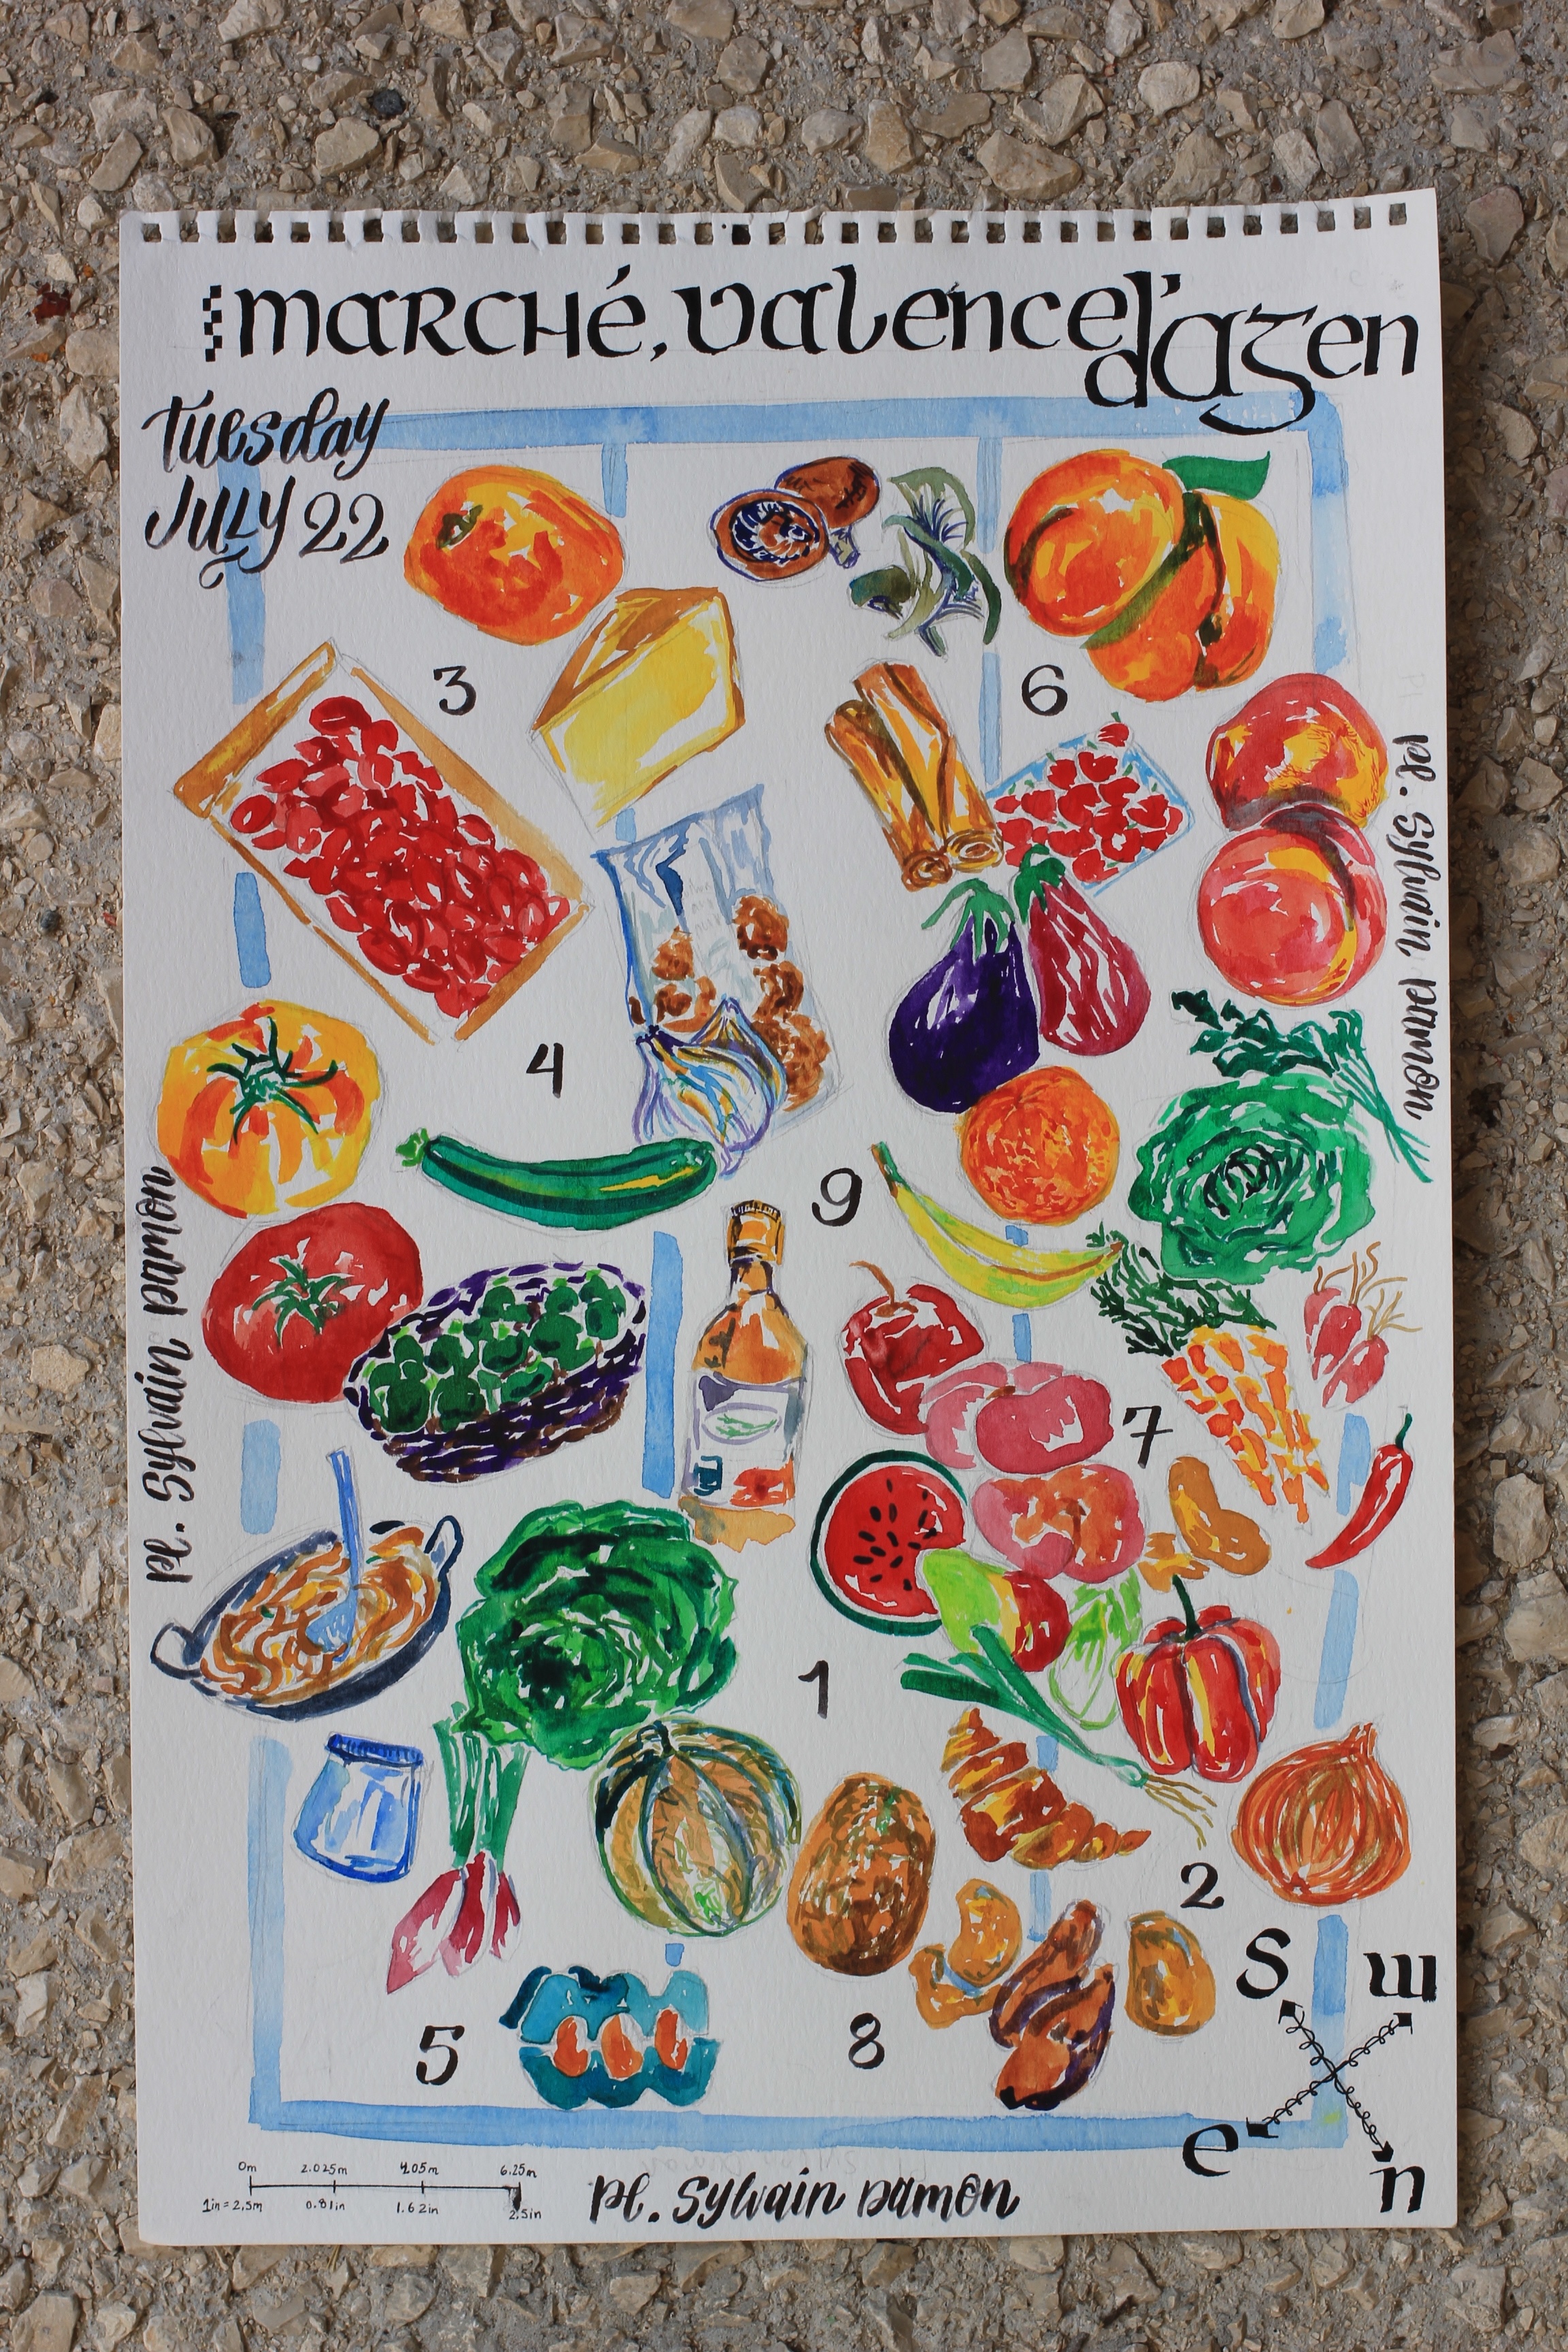 Marché, Valence d'Agen
Tuesday
July 22
3
6
Pl. Sylvain Damon
4
9
Pl. Sylvain Damon
7
1
2
S
W
5
8
e
n
0m 2.025m 4.05m 6.25m
1in = 2.5m 0.81in 1.62in 2.5in
Pl. Sylvain Damon